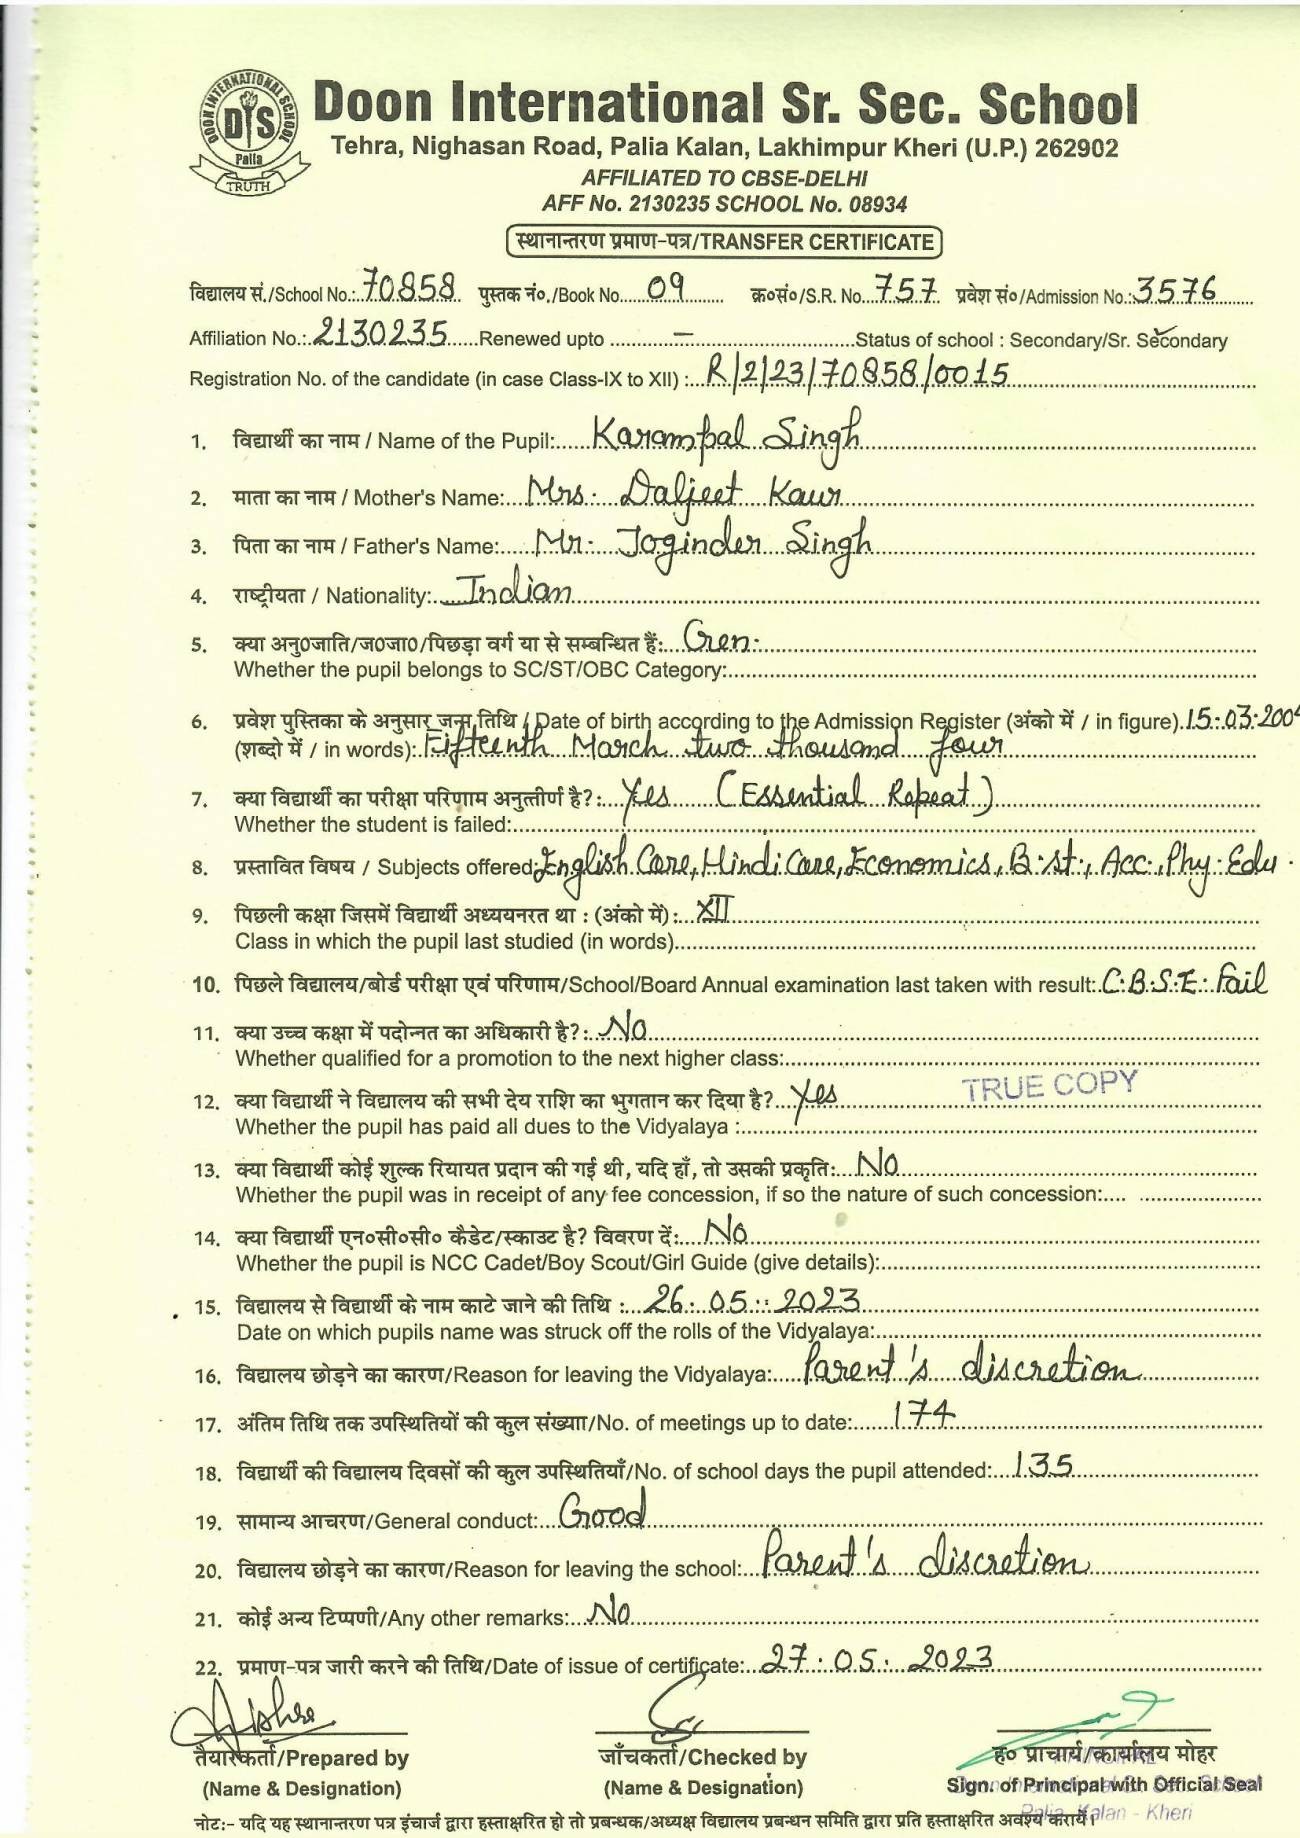 DOON INTERNATIONAL SCHOOL
DIS
Palia
TRUTH
Doon International Sr. Sec. School
Tehra, Nighasan Road, Palia Kalan, Lakhimpur Kheri (U.P.) 262902
AFFILIATED TO CBSE-DELHI
AFF No. 2130235 SCHOOL No. 08934
स्थानान्तरण प्रमाण-पत्र/TRANSFER CERTIFICATE
विद्यालय सं./School No.:.70858 पुस्तक नं०./Book No......09...... क्र०सं०/S.R. No...757. प्रवेश सं०/Admission No.:.3576
Affiliation No.:.2130235......Renewed upto ...........–...........Status of school : Secondary/Sr. Secondary ✓
Registration No. of the candidate (in case Class-IX to XII) :...R/2/23/70858/0015
1. विद्यार्थी का नाम / Name of the Pupil:.....Karampal Singh
2. माता का नाम / Mother's Name:...Mrs. Daljeet Kaur
3. पिता का नाम / Father's Name:.....Mr. Joginder Singh
4. राष्ट्रीयता / Nationality:...Indian
5. क्या अनु0जाति/ज0जा0/पिछड़ा वर्ग या से सम्बन्धित हैं:...Gen.
Whether the pupil belongs to SC/ST/OBC Category:
6. प्रवेश पुस्तिका के अनुसार जन्म तिथि / Date of birth according to the Admission Register (अंको में / in figure).15.03.2004
(शब्दो में / in words):.Fifteenth March two thousand four
7. क्या विद्यार्थी का परीक्षा परिणाम अनुत्तीर्ण है?:...Yes (Essential Repeat)
Whether the student is failed:
8. प्रस्तावित विषय / Subjects offered:English Core, Hindi Core, Economics, B.st., Acc., Phy. Edu.
9. पिछली कक्षा जिसमें विद्यार्थी अध्ययनरत था : (अंको में):...XII
Class in which the pupil last studied (in words)
10. पिछले विद्यालय/बोर्ड परीक्षा एवं परिणाम/School/Board Annual examination last taken with result:.C.B.S.E. Fail
11. क्या उच्च कक्षा में पदोन्नत का अधिकारी है?:..No
Whether qualified for a promotion to the next higher class:
12. क्या विद्यार्थी ने विद्यालय की सभी देय राशि का भुगतान कर दिया है?...Yes
TRUE COPY
Whether the pupil has paid all dues to the Vidyalaya :
13. क्या विद्यार्थी कोई शुल्क रियायत प्रदान की गई थी, यदि हाँ, तो उसकी प्रकृति:...No
Whether the pupil was in receipt of any fee concession, if so the nature of such concession:....
14. क्या विद्यार्थी एन०सी०सी० कैडेट/स्काउट है? विवरण दें:...No
Whether the pupil is NCC Cadet/Boy Scout/Girl Guide (give details):
15. विद्यालय से विद्यार्थी के नाम काटे जाने की तिथि :...26.05.2023
Date on which pupils name was struck off the rolls of the Vidyalaya:
16. विद्यालय छोड़ने का कारण/Reason for leaving the Vidyalaya:....Parent's discretion
17. अंतिम तिथि तक उपस्थितियों की कुल संख्या/No. of meetings up to date:......174
18. विद्यार्थी की विद्यालय दिवसों की कुल उपस्थितियाँ/No. of school days the pupil attended:...135
19. सामान्य आचरण/General conduct:...Good
20. विद्यालय छोड़ने का कारण/Reason for leaving the school:...Parent's discretion
21. कोई अन्य टिप्पणी/Any other remarks:...No
22. प्रमाण-पत्र जारी करने की तिथि/Date of issue of certificate:...27.05.2023
तैयारकर्ता/Prepared by जाँचकर्ता/Checked by ह० प्राचार्य/कार्यालय मोहर
(Name & Designation) (Name & Designation) Sign. of Principal with Official Seal
Palia Kalan - Kheri
नोट:- यदि यह स्थानान्तरण पत्र इंचार्ज द्वारा हस्ताक्षरित हो तो प्रबन्धक/अध्यक्ष विद्यालय प्रबन्धन समिति द्वारा प्रति हस्ताक्षरित अवश्य करायें।